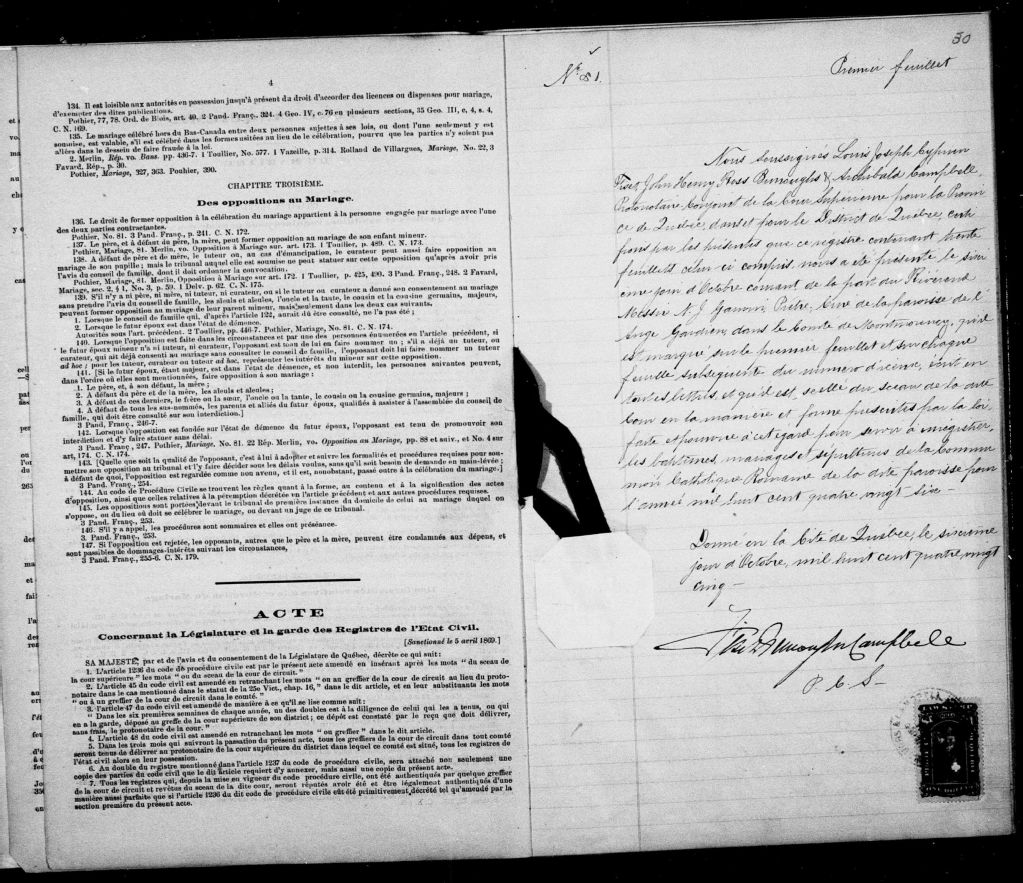 4
134. Il est loisible aux autorités en possession jusqu'à présent du droit d'accorder des licences ou dispenses pour mariage,
d'exempter des dites publications.
Pothier, 77, 78. Ord. de Blois, art. 40. 2 Pand. Franç., 324. 4 Geo. IV, c. 76 en plusieurs sections, 35 Geo. III, c, 4, s. 4,
C. N. 169.
135. Le mariage célébré hors du Bas-Canada entre deux personnes sujettes à ses lois, ou dont l'une seulement y est
soumise, est valable, s'il est célébré dans les formes usitées au lieu de le célébration, pourvu que les parties n'y soient pas
allées dans le dessein de faire fraude à la loi.
2. Merlin, Rép. vo. Bans. pp. 436-7. 1 Toullier, No. 577. 1 Vazeille, p. 314. Rolland de Villargues, Mariage, No. 22, 3
Favard, Rép., p. 30.
Pothier, Mariage, 327, 363. Pouhier, 390.
CHAPITRE TROISIÈME.
Des oppositions au Mariage.
136. Le droit de former opposition à la célébration du mariage appartient à la personne engagée par mariage avec l'une
des deux parties contractantes.
Pothier, No. 81. 3 Pand. Franç., p. 241. C. N. 172.
137. Le père, et à défaut du père, la mère, peut former opposition au mariage de son enfant mineur.
Pothier, Mariage, 81. Merlin, vo. Opposition à Mariage sur. art. 173. 1 Toullier, p. 489. C. N. 173.
138. A défaut de père et de mère, le tuteur ou, au cas d'émancipation, le curateur peut aussi faire opposition au
mariage de son pupille; mais le tribunal auquel elle est soumise ne peut statuer sur cette opposition qu'après avoir pris
l'avis du conseil de famille, dont il doit ordonner la convocation.
Pothier, Mariage, 81. Merlin, Opposition à Mariage sur art. 172. 1 Toullier, p. 425, 490. 3 Pand. Franç., 248. 2 Favard,
Mariage, sec. 2, § 1, No. 3, p. 59. 1 Delv. p. 62. C. N. 175.
139. S'il n'y a ni père, ni mère, ni tuteur, ni curateur, ou si le tuteur ou curateur a donné son consentement au mariage
sans prendre l'avis du conseil de famille, les aïeuls et aïeules, l'oncle et la tante, le cousin et la cousine germains, majeurs,
peuvent former opposition au mariage de leur parent mineur, mais seulement dans les deux cas suivants.
1. Lorsque le conseil de famille qui, d'après l'article 122, aurait dû être consulté, ne l'a pas été ;
2. Lorsque le futur époux est dans l'état de démence.
Autorités sous l'art. précédent. 2 Toullier, pp. 446-7. Pothier, Mariage, No. 81. C. N. 174.
140. Lorsque l'opposition est faite dans les circonstances et par une des personnes énumérées en l'article précédent, si
le futur époux mineur n'a ni tuteur, ni curateur, l'opposant est tenu de lui en faire nommer un ; s'il a déjà un tuteur, ou
curateur, qui ait déjà consenti au mariage sans consulter le conseil de famille, l'opposant doit lui faire nommer un tuteur
ad hoc ; pour les tuteur, curateur ou tuteur ad hoc, représenter les intérêts du mineur sur cette opposition.
141. [Si le futur époux, étant majeur, est dans l'état de démence, et non interdit, les personnes suivantes peuvent,
dans l'ordre où elles sont mentionnées, faire opposition à son mariage :
1. Le père, et, à son défaut, la mère ;
2. A défaut du père et de la mère, les aïeuls et aïeules ;
3. A défaut de ces derniers, le frère ou la sœur, l'oncle ou la tante, le cousin ou la cousine germains, majeurs ;
4. A défaut de tous les sus-nommés, les parents et alliés du futur époux, qualifiés à assister à l'assemblée du conseil de
famille, qui doit être consulté sur son interdiction.]
3 Pand. Franç., 246-7.
142. Lorsque l'opposition est fondée sur l'état de démence du futur époux, l'opposant est tenu de promouvoir son
interdiction et d'y faire statuer sans délai.
3 Pand. Franç., 247. Pothier, Mariage, No. 81. 22 Rép. Merlin, vo. Opposition au Mariage, pp. 88 et suiv., et No. 4 sur
art, 174. C. N. 174.
143. [Quelle que soit la qualité de l'opposant, c'est à lui à adopter et suivre les formalités et procédures requises pour sou-
mettre son opposition au tribunal et l'y faire décider sous les délais voulus, sans qu'il soit besoin de demande en main-levée ;
à défaut de quoi, l'opposition est regardée comme non avenu, et il est, nonobstant, passé outre à la célébration du mariage.]
3 Pand. Franç., 254.
144. Au code de Procédure Civile se trouvent les règles quant à la forme, au contenu et à la signification des actes
d'opposition, ainsi que celles relatives à la péremption décrétée en l'article précédent et aux autres procédures requises.
145. Les oppositions sont portées devant le tribunal de première instance du domicile de celui au mariage duquel on
s'oppose, ou du lieu où doit se célébrer le mariage, ou devant un juge de ce tribunal.
3 Pand. Franç., 253.
146. S'il y a appel, les procédures sont sommaires et elles ont préséance.
3. Pand. Franç., 253.
147. Si l'opposition est rejetée, les opposants, autres que le père et la mère, peuvent être condamnés aux dépens, et
sont passibles de dommages-intérêts suivant les circonstances,
3 Pand. Franç., 255-6. C. N. 179.
ACTE
Concernant la Législature et la garde des Registres de l'Etat Civil.
[Sanctionné le 5 avril 1869.]
SA MAJESTÉ, par et de l'avis et du consentement de la Législature de Québec, décrète ce qui suit :
1. L'article 1236 du code de procédure civile est par le présent acte amendé en insérant après les mots " du sceau de
la cour supérieure " les mots " ou du sceau de la cour de circuit."
2. L'article 45 du code civil est amendé en retranchant les mots " ou au greffier de la cour de circuit au lieu du proto-
notaire dans le cas mentionné dans le statut de la 25e Vict., chap. 16, " dans le dit article, et en leur substituants les mots
" ou à un greffier de la cour de circuit dans le comté."
3. l'article 47 du code civil est amendé de manière à ce qu'il se lise comme suit :
" Dans les six premières semaines de chaque année, un des doubles est à la diligence de celui qui les a tenus, ou qui
en a la garde, déposé au greffe de la cour supérieure de son district ; ce dépôt est constaté par le reçu que doit délivrer,
sans frais, le protonotaire de la cour."
4. L'article 48 du code civil est amendé en retranchant les mots " ou greffier " dans le dit article.
5. Dans les trois mois qui suivront la passation du présent acte, tous les greffiers de la cour de circuit dans tout comté
seront tenus de délivrer au protonotaire de la cour supérieure du district dans lequel ce comté est situé, tous les registres de
l'état civil alors en leur possession.
6. Au double du registre mentionné dans l'article 1237 du code de procédure civile, sera attaché non seulement une
copie des parties du code civil que le dit article requiert d'y annexer, mais aussi une copie du présent acte.
7. Tous les registres qui, depuis la mise en vigueur du code de procédure civile, ont été authentiqués par quelque greffier
de la cour de circuit et revêtus du sceau de la dite cour, seront réputés avoir été et être légalement authentiqués d'une
manière aussi parfaite que si l'article 1236 du dit code de procédure civile eût été primitivement décrété tel qu'amendé par la
section première du présent acte.
30
No. 81.
Premier feuillet
Nous soussignés Louis Joseph Cyprien
Fiset, John Henry Ross Burroughs & Archibald Campbell,
Protonotaire Conjoint de la Cour Supérieure pour la Provin
ce de Québec, dans et pour le District de Québec, certi
fions par les présentes que ce registre contenant trente
feuillets celui ci compris, nous a été présenté le sixi
ème jour d'Octobre courant de la part du Révérend
Messire N. J. Prêtre, Curé de la paroisse de l'
Ange Gardien, dans le Comté de Montmorency, qu'il
est marqué sur le premier feuillet et sur chaque
feuille subséquente du numéro d'icelui, écrit en
toutes lettres, et qu'il est scellé du sceau de la dite
Cour en la manière et forme présentes par la loi
faite et pourvue à cet égard pour servir à enregistrer,
les baptêmes, mariages et sépultures de la Commu
nion Catholique Romaine de la dite paroisse pour
l'année mil huit cent quatre vingt six —
Donné en la Cité de Québec, le sixième
jour d'Octobre, mil huit cent quatre vingt
cinq —
Fiset Burroughs Campbell
P. C. S.